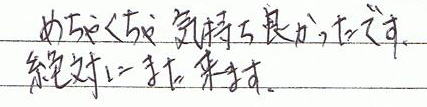 めちゃくちゃ気持ち良かったです。
絶対にまた来ます。